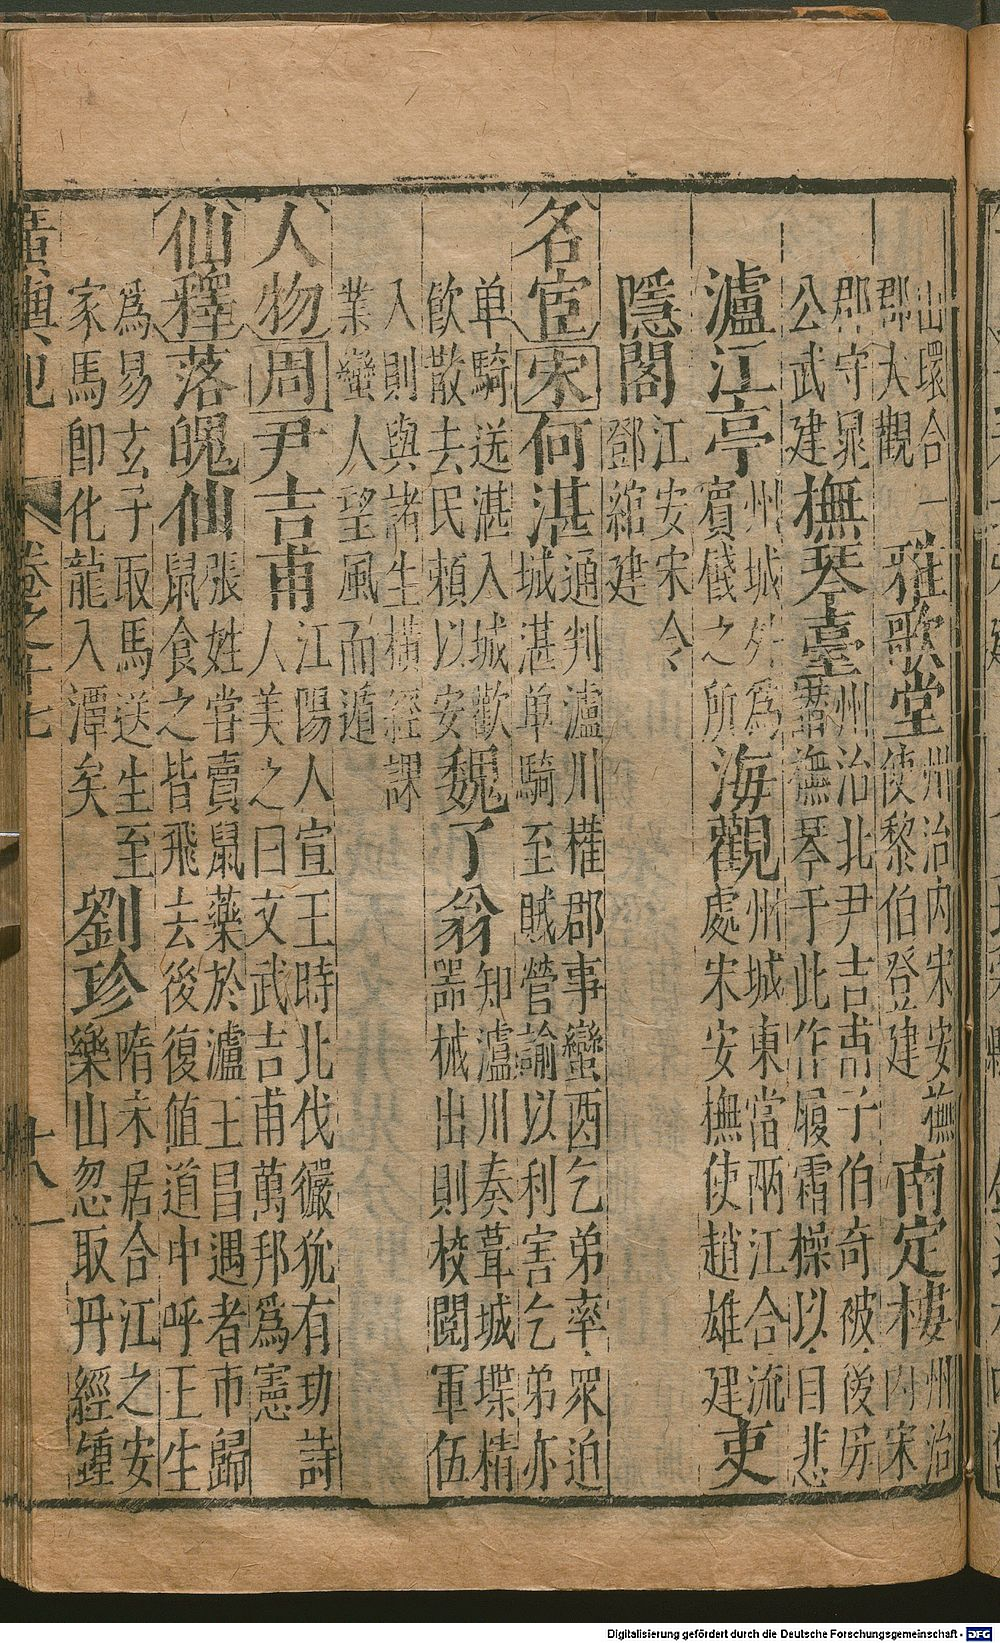 山環合一
郡大觀
雅歌堂
州治内宋安撫
使黎伯登建
南定樓
州治
内宋
郡守晁
公武建
撫琴臺
州治北尹吉甫子伯奇被後母
譖撫琴于此作履霜操以自悲
瀘江亭
州城外爲
賓餞之所
海觀
州城東當兩江合流
處宋安撫使趙雄建
吏
隱閣
江安宋令
鄧綰建
名宦
宋
何湛
通判瀘川權郡事蠻酉乞弟率衆迫
城湛单騎至賊營諭以利害乞弟亦
单騎送湛入城歡
飲散去民頼以安
魏了翁
知瀘川奏葺城堞精
噐械出則校閱軍伍
入則與諸生橫經課
業蠻人望風而遁
人物
周
尹吉甫
江陽人宣王時北伐玁狁有功詩
人美之曰文武吉甫萬邦爲憲
仙釋
落魄仙
張姓嘗賣鼠藥於瀘王昌遇者市歸
鼠食之皆飛去後復値道中呼王生
爲易玄子取馬送生至
家馬卽化龍入潭矣
劉珍
隋末居合江之安
樂山忽取丹經鍾
廣輿記
卷之十七
十八
Digitalisierung gefördert durch die Deutsche Forschungsgemeinschaft - DFG